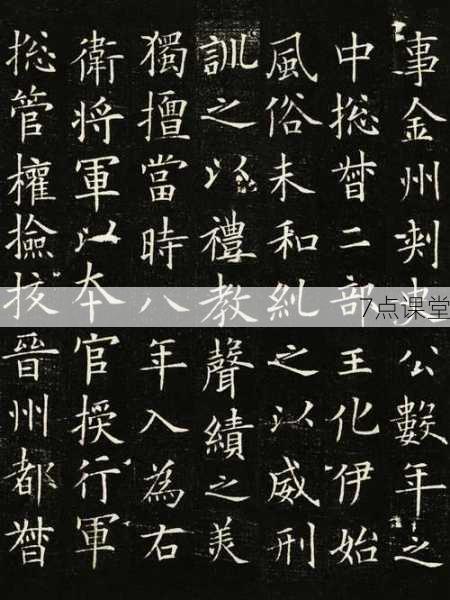 事金州刾史公數年之
中揔督二部王化伊始
風俗未和糺之以威刑
訓之以禮教聲績之美
獨擅當時八年入為右
衛將軍以本官授行軍
揔管權撿挍晉州都督
7点课堂